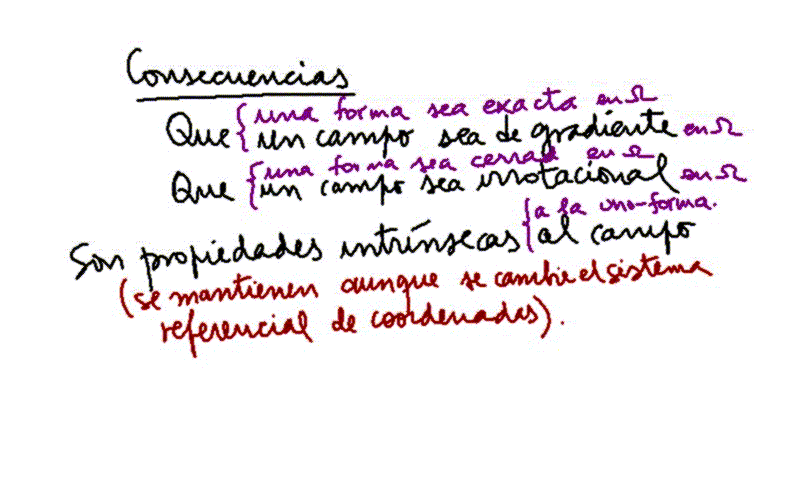 Consecuencias
una forma sea exacta en Ω
Que { un campo sea de gradiente en Ω
una forma sea cerrada en Ω
Que { un campo sea irrotacional en Ω
a la uno-forma.
Son propiedades intrínsecas { al campo
(se mantienen aunque se cambie el sistema
referencial de coordenadas).